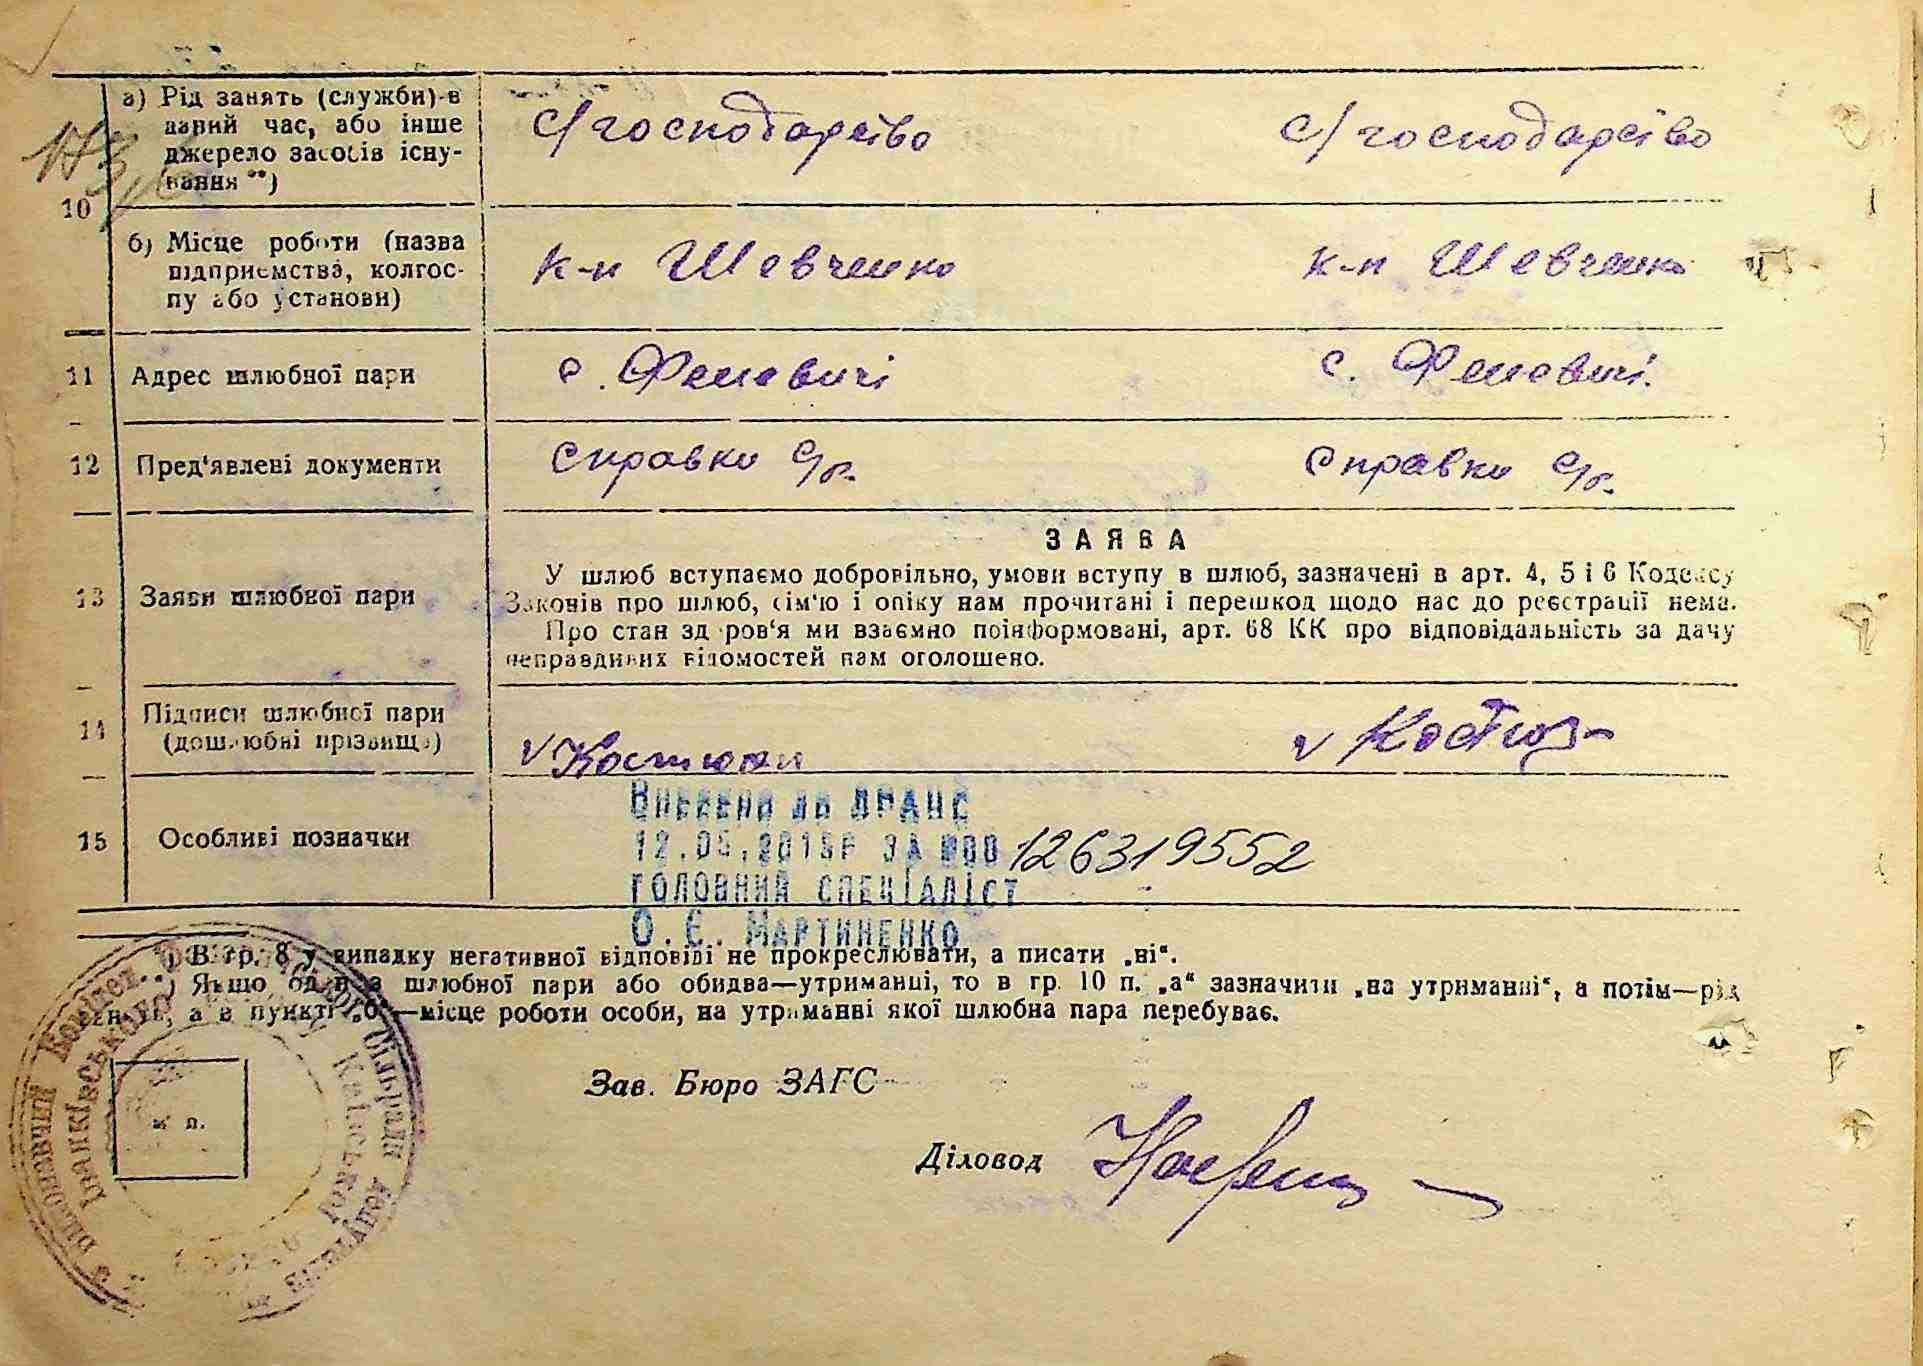 а) Рід занять (служби) в
даний час, або інше
джерело засобів існу-
вання **)
с/господарство с/господарство
10
б) Місце роботи (назва
підприємства, колгос-
пу або установи)
к-п Шевченко к-п Шевченко
11 Адрес шлюбної пари с. Феневичі с. Феневичі.
12 Пред'явлені документи Справки с/р. Справки с/р.
13 Заяви шлюбної пари
ЗАЯВА
У шлюб вступаємо добровільно, умови вступу в шлюб, зазначені в арт. 4, 5 і 6 Кодексу
Законів про шлюб, сім'ю і опіку нам прочитані і перешкод щодо нас до реєстрації нема.
Про стан здоров'я ми взаємно поінформовані, арт. 68 КК про відповідальність за дачу
неправдивих відомостей нам оголошено.
14 Підписи шлюбної пари
(дошлюбні прізвища)
v Костюк v Костюк
15 Особливі позначки
Внесено до ДРАЦС
12.05.2015р за №00 126319552
головний спеціаліст
О.Є. Мартиненко
*) В гр. 8 у випадку негативної відповіді не прокреслювати, а писати „ні“.
**) Якщо один з шлюбної пари або обидва—утриманці, то в гр. 10 п. „а“ зазначити „на утриманні“, а потім—рід
занять, а в пункті „б“—місце роботи особи, на утриманні якої шлюбна пара перебуває.
Зав. Бюро ЗАГС
м. п.
Діловод